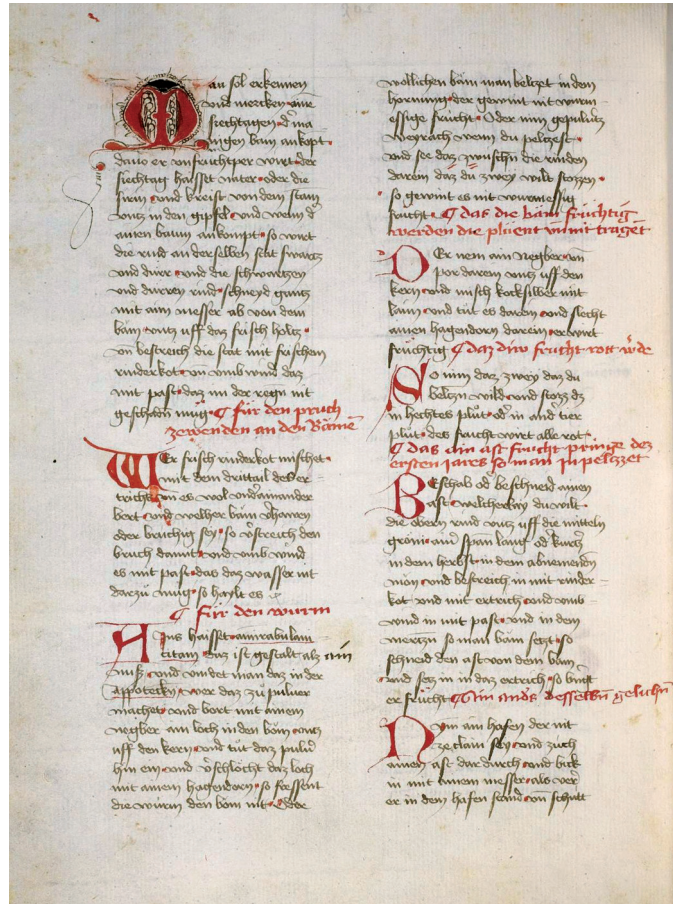 Man sol erkennen
vnd mercken aine
siechtagen d' ma
nigen bam ankopt
dauo er vnfruchtper wirt der
siechtag haisset nater oder die
sirin vnd kreist von dem stam
vntz in den gipfel vnd wenn d'
ainen baum ankompt so wirt
die rind an der selben seit swartz
vnd dürr vnd die schwartzen
vnd durren rind schneyd gantz
mit aim messer ab von dem
bäm vntz uff daz frisch holtz
vn bestreich die stat mit frischem
rinderkot vn vmb wind daz
mit past daz in der regn nit
geschaden mug ¶ für den pruch
zewenden an den Bämē
WEr frisch rinderkot mischet
mit dem drittail des er
trichs vn es wol vnderainander
bort vnd welher bäm v'hawen
oder brüchig sey so v'streich den
bruch damit vnd vmb wind
es mit past das daz wasser nit
darzu mug so haylt es
¶ Für den wurm
Ains haisset amirabulam
citam daz ist gestalt alz ain
nuß vnd vindet man daz in der
appotecky wer daz zu puluer
machet vnd bort mit ainem
negber ain loch in den böm vntz
uff den kern vnd tüt daz pulu'
hin ein vnd v'schlöcht daz loch
mit ainem hagendorn so fressent
die würm den böm nit Oder
wöllichen bäm man beltzet in dem
hornung der gewint nit wurm
essige frücht Oder nim gepuluertz
weyrach wenn du peltzest
vnd see daz zwüschn die rinden
darein daz du zwey wilt stossen
so gewint es nit wurmessig
frucht ¶ das die bäm früchtig
werden die plüent vn nit traget
DEr nem ain negber vn
por darein vntz uff den
kern vnd misch kecksilber mit
bäm vnd tüt es darein vnd slecht
ainen hagendorn darein er wirt
früchtig ¶ daz diw frucht rott w'de
So nim daz zwey daz du
beltzn wild vnd stoss dz
in hechtes plüt od' in and' tier
plüt des frucht wirt alle rot
¶ Das ain ast frucht pringe dez
ersten jares so man jn peltzzet
BEschab od beschneid ainen
ast welcherlay du wilt
die obern rind vntz uff die mitteln
gröni ain span lang od' kürtz
in dem herbst in dem abnemenden
mon vnd bestreich in mit rinder
kot vnd mit ertrich vnd vmb
wind in mit past vnd in dem
mertzn so man bäm setzt so
schneid den ast von dem bäm
vnd setz in in daz ertrich so bringt
er frücht ¶ Ain anders desselbn gelichn
Nim ain hafen der nit
ze clain sey vnd züch
ainen ast dar durch vnd bick
in mit ainem messer als verr
er in dem hafen stand vn schütt